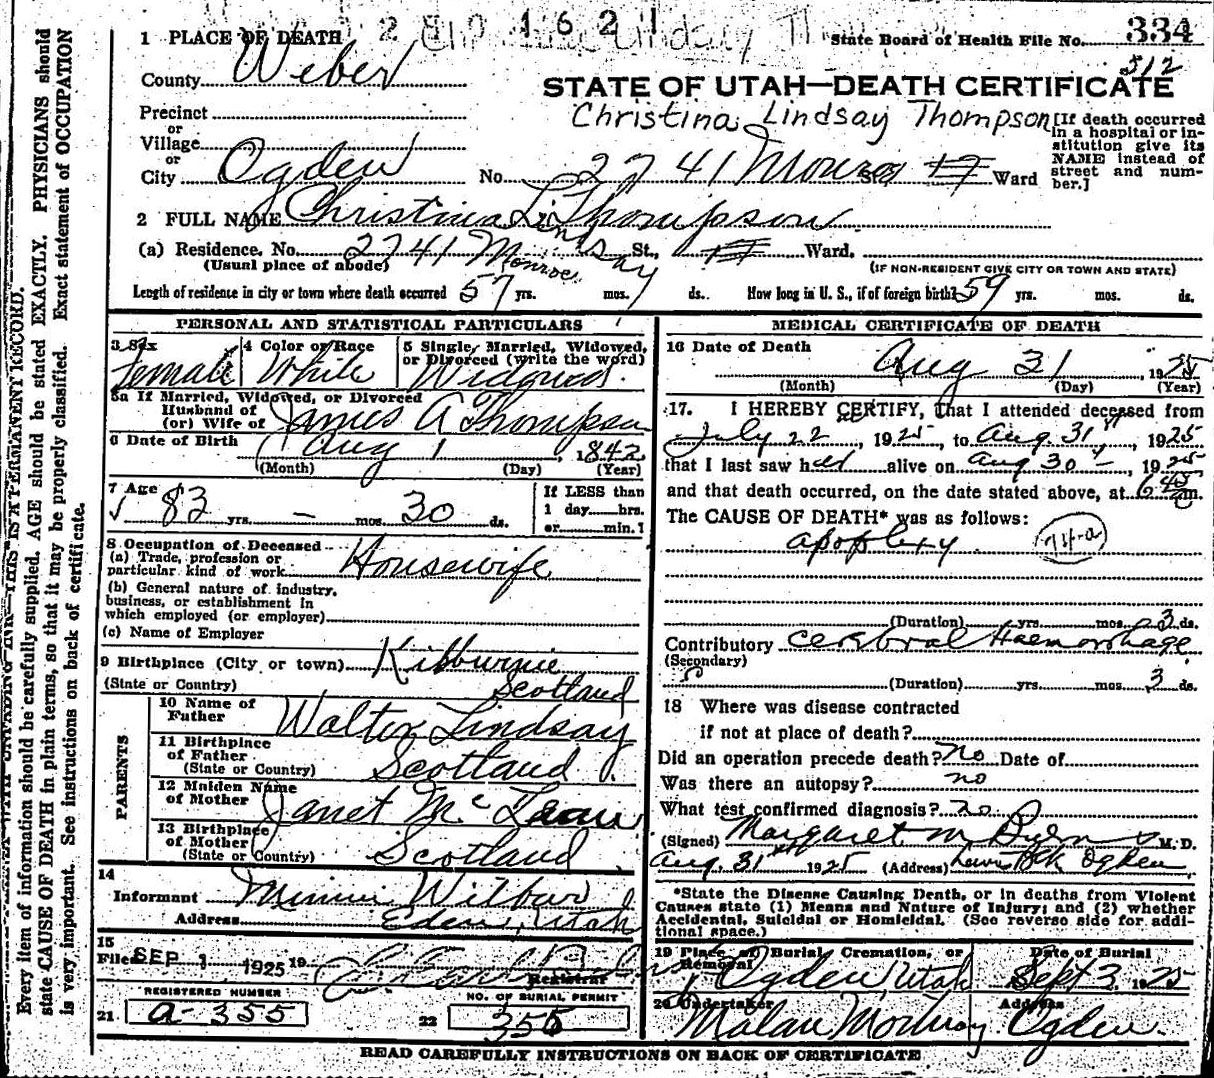 2 1 6 2 1
State Board of Health File No. 334
312
1 PLACE OF DEATH
County Weber
STATE OF UTAH—DEATH CERTIFICATE
Christina Lindsay Thompson
Precinct
or
Village
or
City Ogden No. 2741 Monroe St. Ward
[If death occurred in a hospital or institution give its NAME instead of street and number.]
2 FULL NAME Christina Lindsay Thompson
(a) Residence. No. 2741 Monroe St. Ward.
(Usual place of abode)
(IF NON-RESIDENT GIVE CITY OR TOWN AND STATE)
Length of residence in city or town where death occurred 57 yrs. mos. ds. How long in U. S., if of foreign birth? 59 yrs. mos. ds.
PERSONAL AND STATISTICAL PARTICULARS
3 Sex Female
4 Color or Race White
5 Single, Married, Widowed, or Divorced (write the word) Widowed.
5a If Married, Widowed, or Divorced
Husband of
(or) Wife of James A Thompson
6 Date of Birth Aug 1, 1842
(Month) (Day) (Year)
7 Age
83 yrs. — mos. 30 ds.
If LESS than
1 day hrs.
or min.?
8 Occupation of Deceased
(a) Trade, profession or
particular kind of work Housewife
(b) General nature of industry,
business, or establishment in
which employed (or employer)
(c) Name of Employer
9 Birthplace (City or town) Kilburnie
(State or Country) Scotland
PARENTS
10 Name of
Father Walter Lindsay
11 Birthplace
of Father
(State or Country) Scotland
12 Maiden Name
of Mother Janet McLean
13 Birthplace
of Mother
(State or Country) Scotland
14
Informant Minnie Wilbur
Address Eden, Utah
15
Filed SEP 1 1925 19
Registrar
REGISTERED NUMBER
21 a-355
NO. OF BURIAL PERMIT
22 355
MEDICAL CERTIFICATE OF DEATH
16 Date of Death Aug 31, 1925
(Month) (Day) (Year)
17. I HEREBY CERTIFY, that I attended deceased from
July 22nd, 1925, to Aug. 31st, 1925
that I last saw her alive on Aug 30, 1925
and that death occurred, on the date stated above, at 6 45 m.
The CAUSE OF DEATH* was as follows:
apoplexy 74-a
(Duration) yrs. mos. 3 ds.
Contributory Cerebral Haemorrhage
(Secondary)
(Duration) yrs. mos. 3 ds.
18 Where was disease contracted
if not at place of death?
Did an operation precede death? no Date of
Was there an autopsy? no
What test confirmed diagnosis? no
(Signed) Margaret M M.D.
Aug. 31st 1925 (Address) Ogden
*State the Disease Causing Death, or in deaths from Violent
Causes state (1) Means and Nature of Injury; and (2) whether
Accidental, Suicidal or Homicidal. (See reverse side for additional space.)
19 Place of Burial, Cremation, or Removal Ogden, Utah
Date of Burial Sept 3, 1925
20 Undertaker Malan Mortuary
Address Ogden.
READ CAREFULLY INSTRUCTIONS ON BACK OF CERTIFICATE
THIS IS A PERMANENT RECORD.
Every item of information should be carefully supplied. AGE should be stated EXACTLY. PHYSICIANS should
state CAUSE OF DEATH in plain terms, so that it may be properly classified. Exact statement of OCCUPATION
is very important. See instructions on back of certificate.